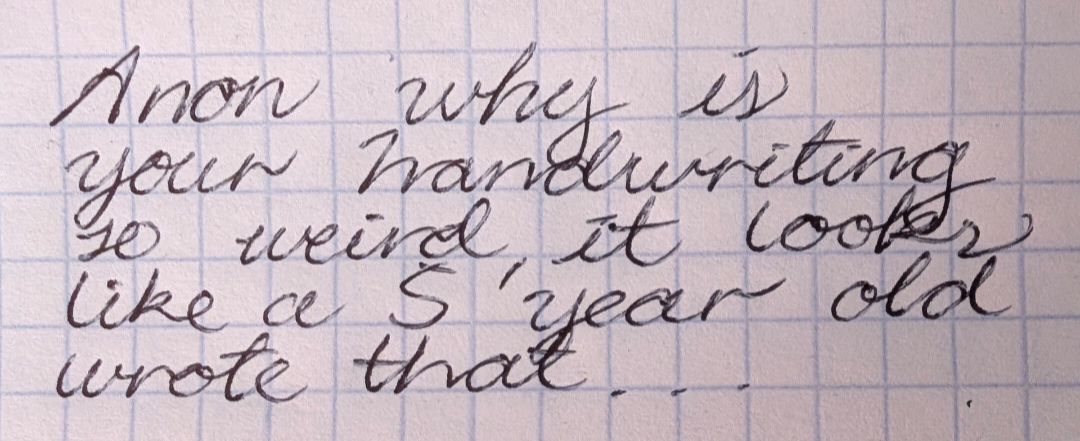 Anon why is
your handwriting
so weird, it looks
like a 5 year old
wrote that...